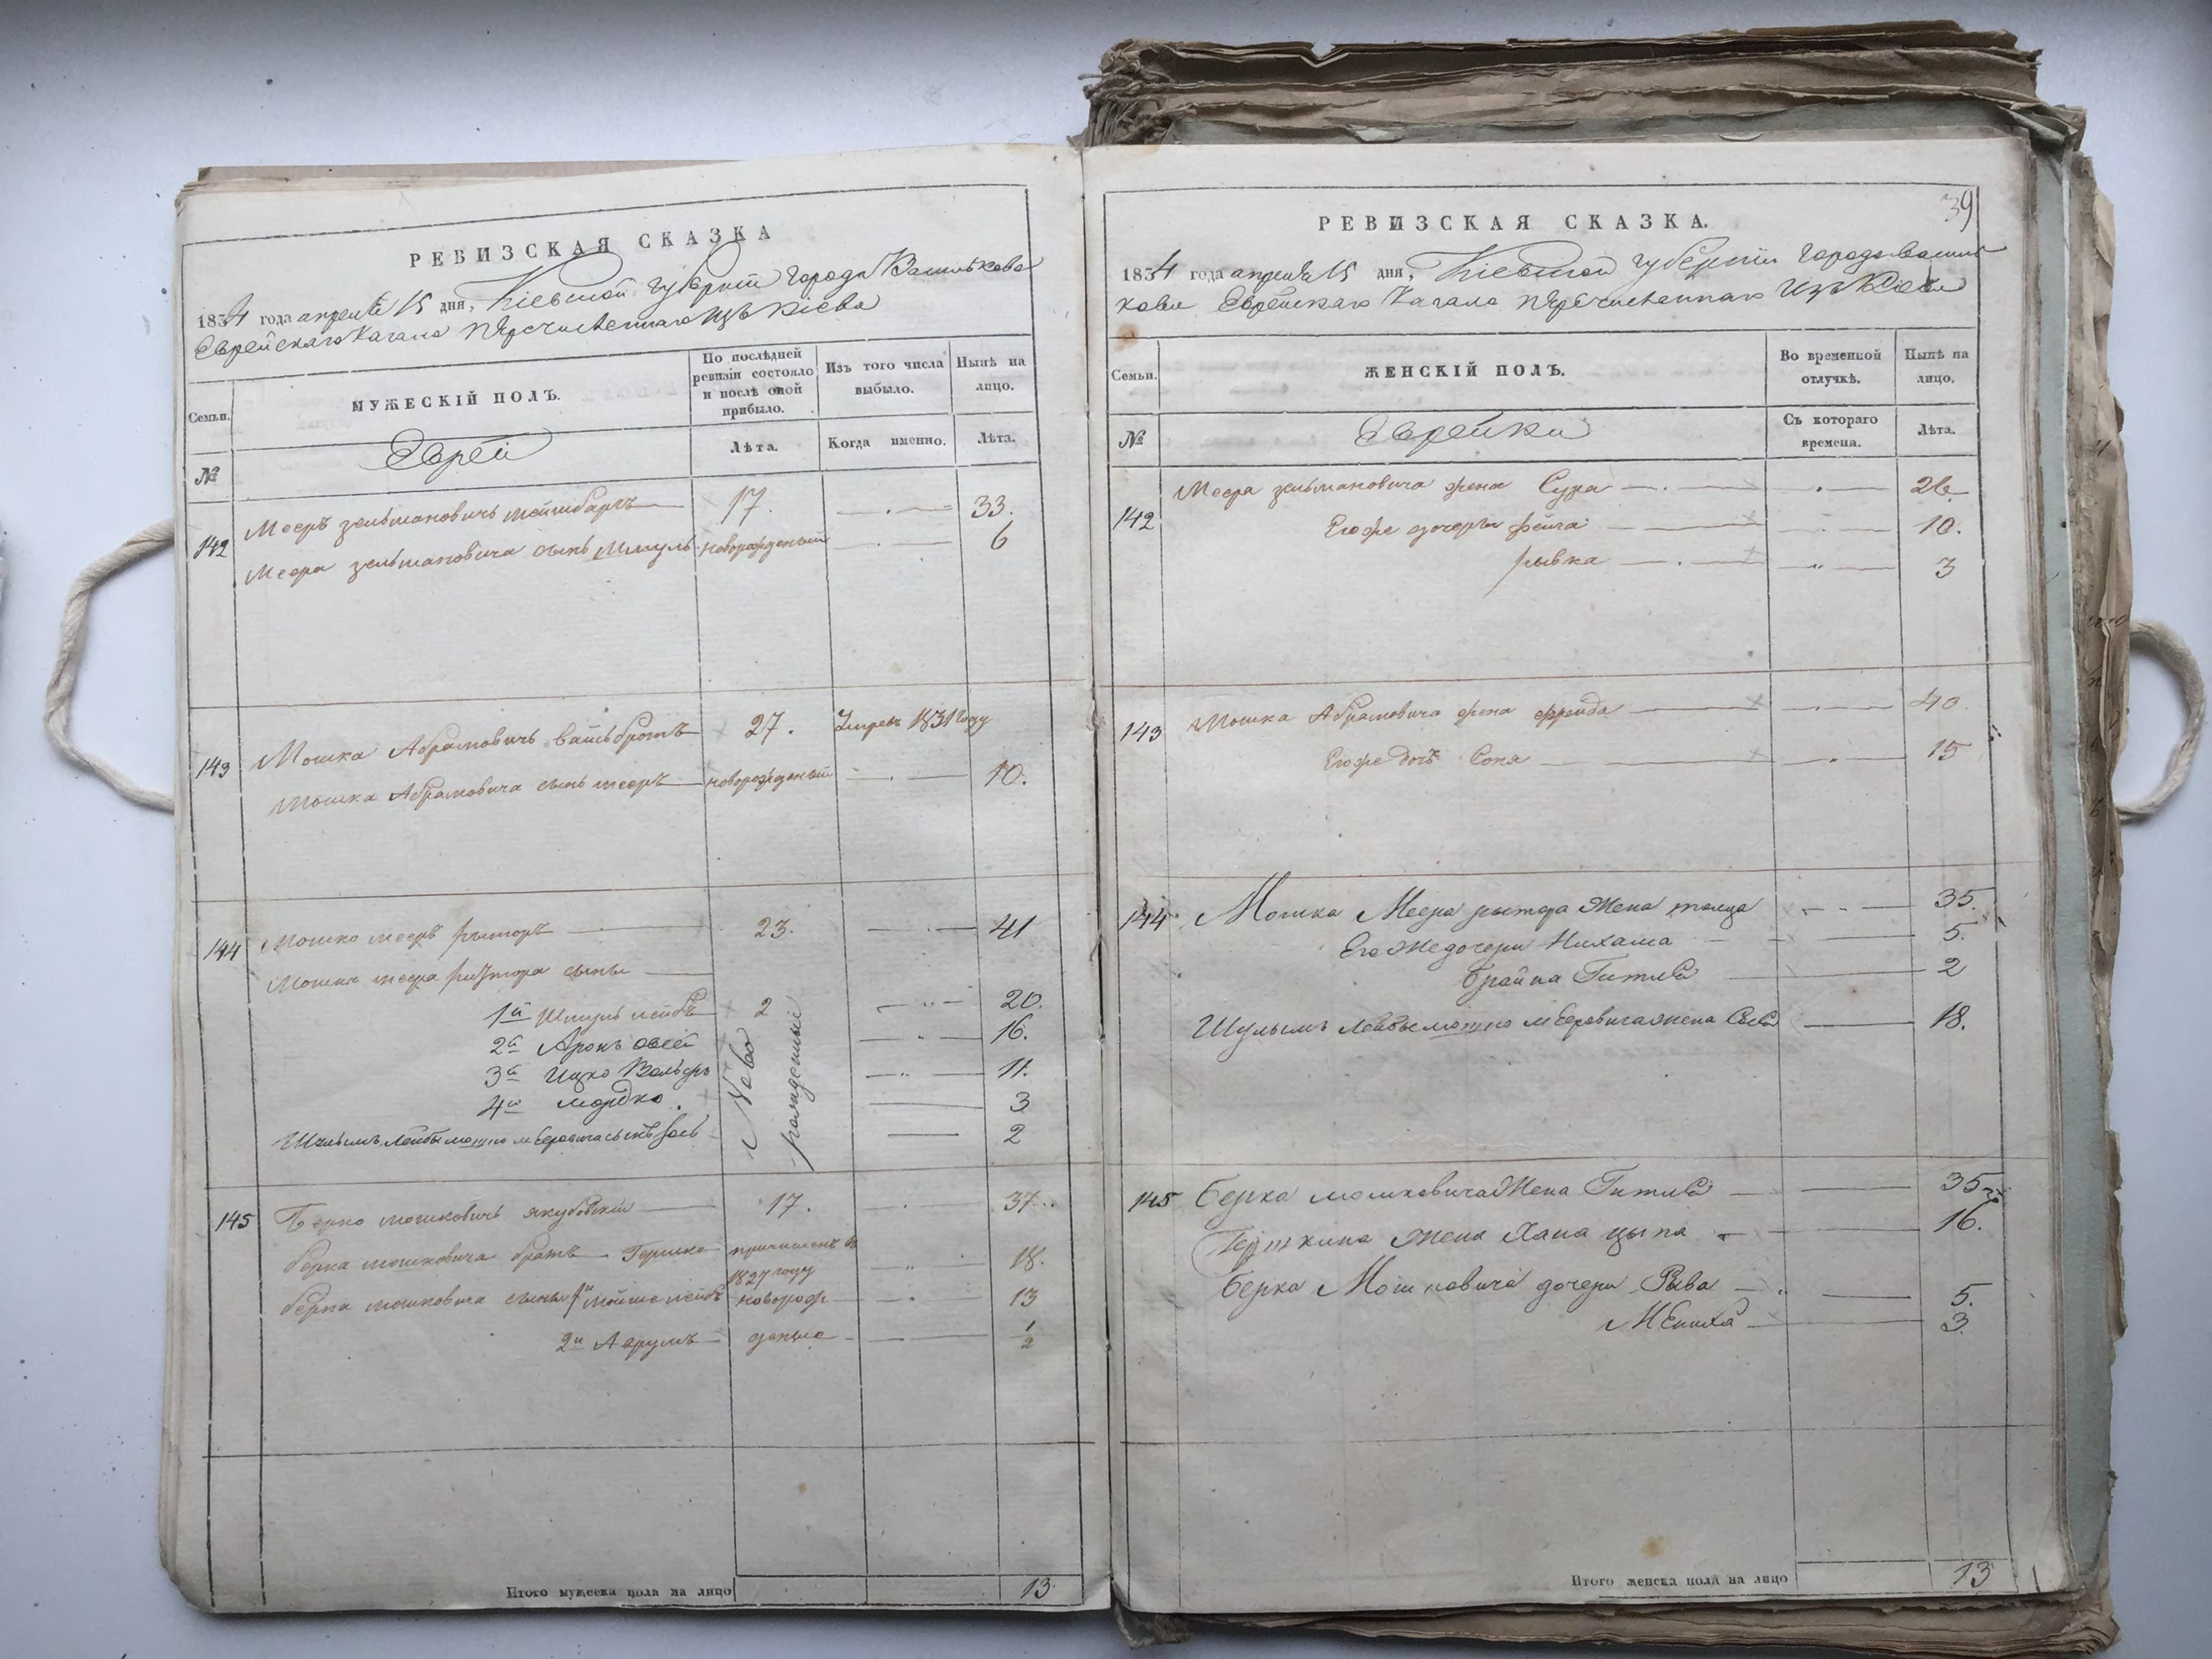 РЕВИЗСКАЯ СКАЗКА
1834 года апреля 15 дня, Кіевской губерніи города Василькова
Еврейскаго Кагала перечисленнаго изъ Кіева
Семьи.
МУЖЕСКІЙ ПОЛЪ.
По послѣдней ревизіи состояло и послѣ оной прибыло.
Изъ того числа выбыло.
Нынѣ на лицо.
№
Еврей
Лѣта.
Когда именно.
Лѣта.
142 Мееръ зельмановичъ 17. 33.
Меера зельмановича сынъ Шмуль новорожденый 6
143 Мошка Абрамовичъ вайсбротъ 27. Умреъ 1831 году
Мошка Абрамовича сынъ мееръ новорожденый 10.
144 Мошко мееръ 23. 41
Мошка меера сыны
1й Шмуль лейбъ 2 20.
2й Аронъ овсей Ново рожденныи 16.
3й Ицко Вольфъ 11.
4й мордко. 3
Лейбы мошко мееровича сынъ 2
145 Берко мошковичъ якубовскій 17. 37.
берка мошковича братъ Гершко причисленъ в 1827 году 18.
берка мошковича сыны 1й мойше лейбъ новорож 13
2й Аврумъ деные 1/2
Итого мужеска пола на лицо 13
39
РЕВИЗСКАЯ СКАЗКА.
1834 года апреля 15 дня, Кіевской губерніи города Василь
кова Еврейскаго Кагала перечисленнаго изъ Кіева
Семьи.
ЖЕНСКІЙ ПОЛЪ.
Во временной отлучкѣ.
Нынѣ на лицо.
№
Еврейки
Съ котораго времена.
Лѣта.
142 Меера зельмановича жена Сура 26
Егоже дочери фейга 10.
рывка 3
143 Мошка Абрамовича жена фрейда 40.
Егоже дочь Соня 15
144 Мошка Меера жена 35.
Его же дочери Нихама 5.
Брайна Гитля 2
Лейбы мошко мееровича жена 18.
145 Берка мошковича жена Гитля 35
Гершкина жена Хана цыпа 16.
Берка Мошковича дочери Рыва 5.
3.
Итого женска пола на лицо 13